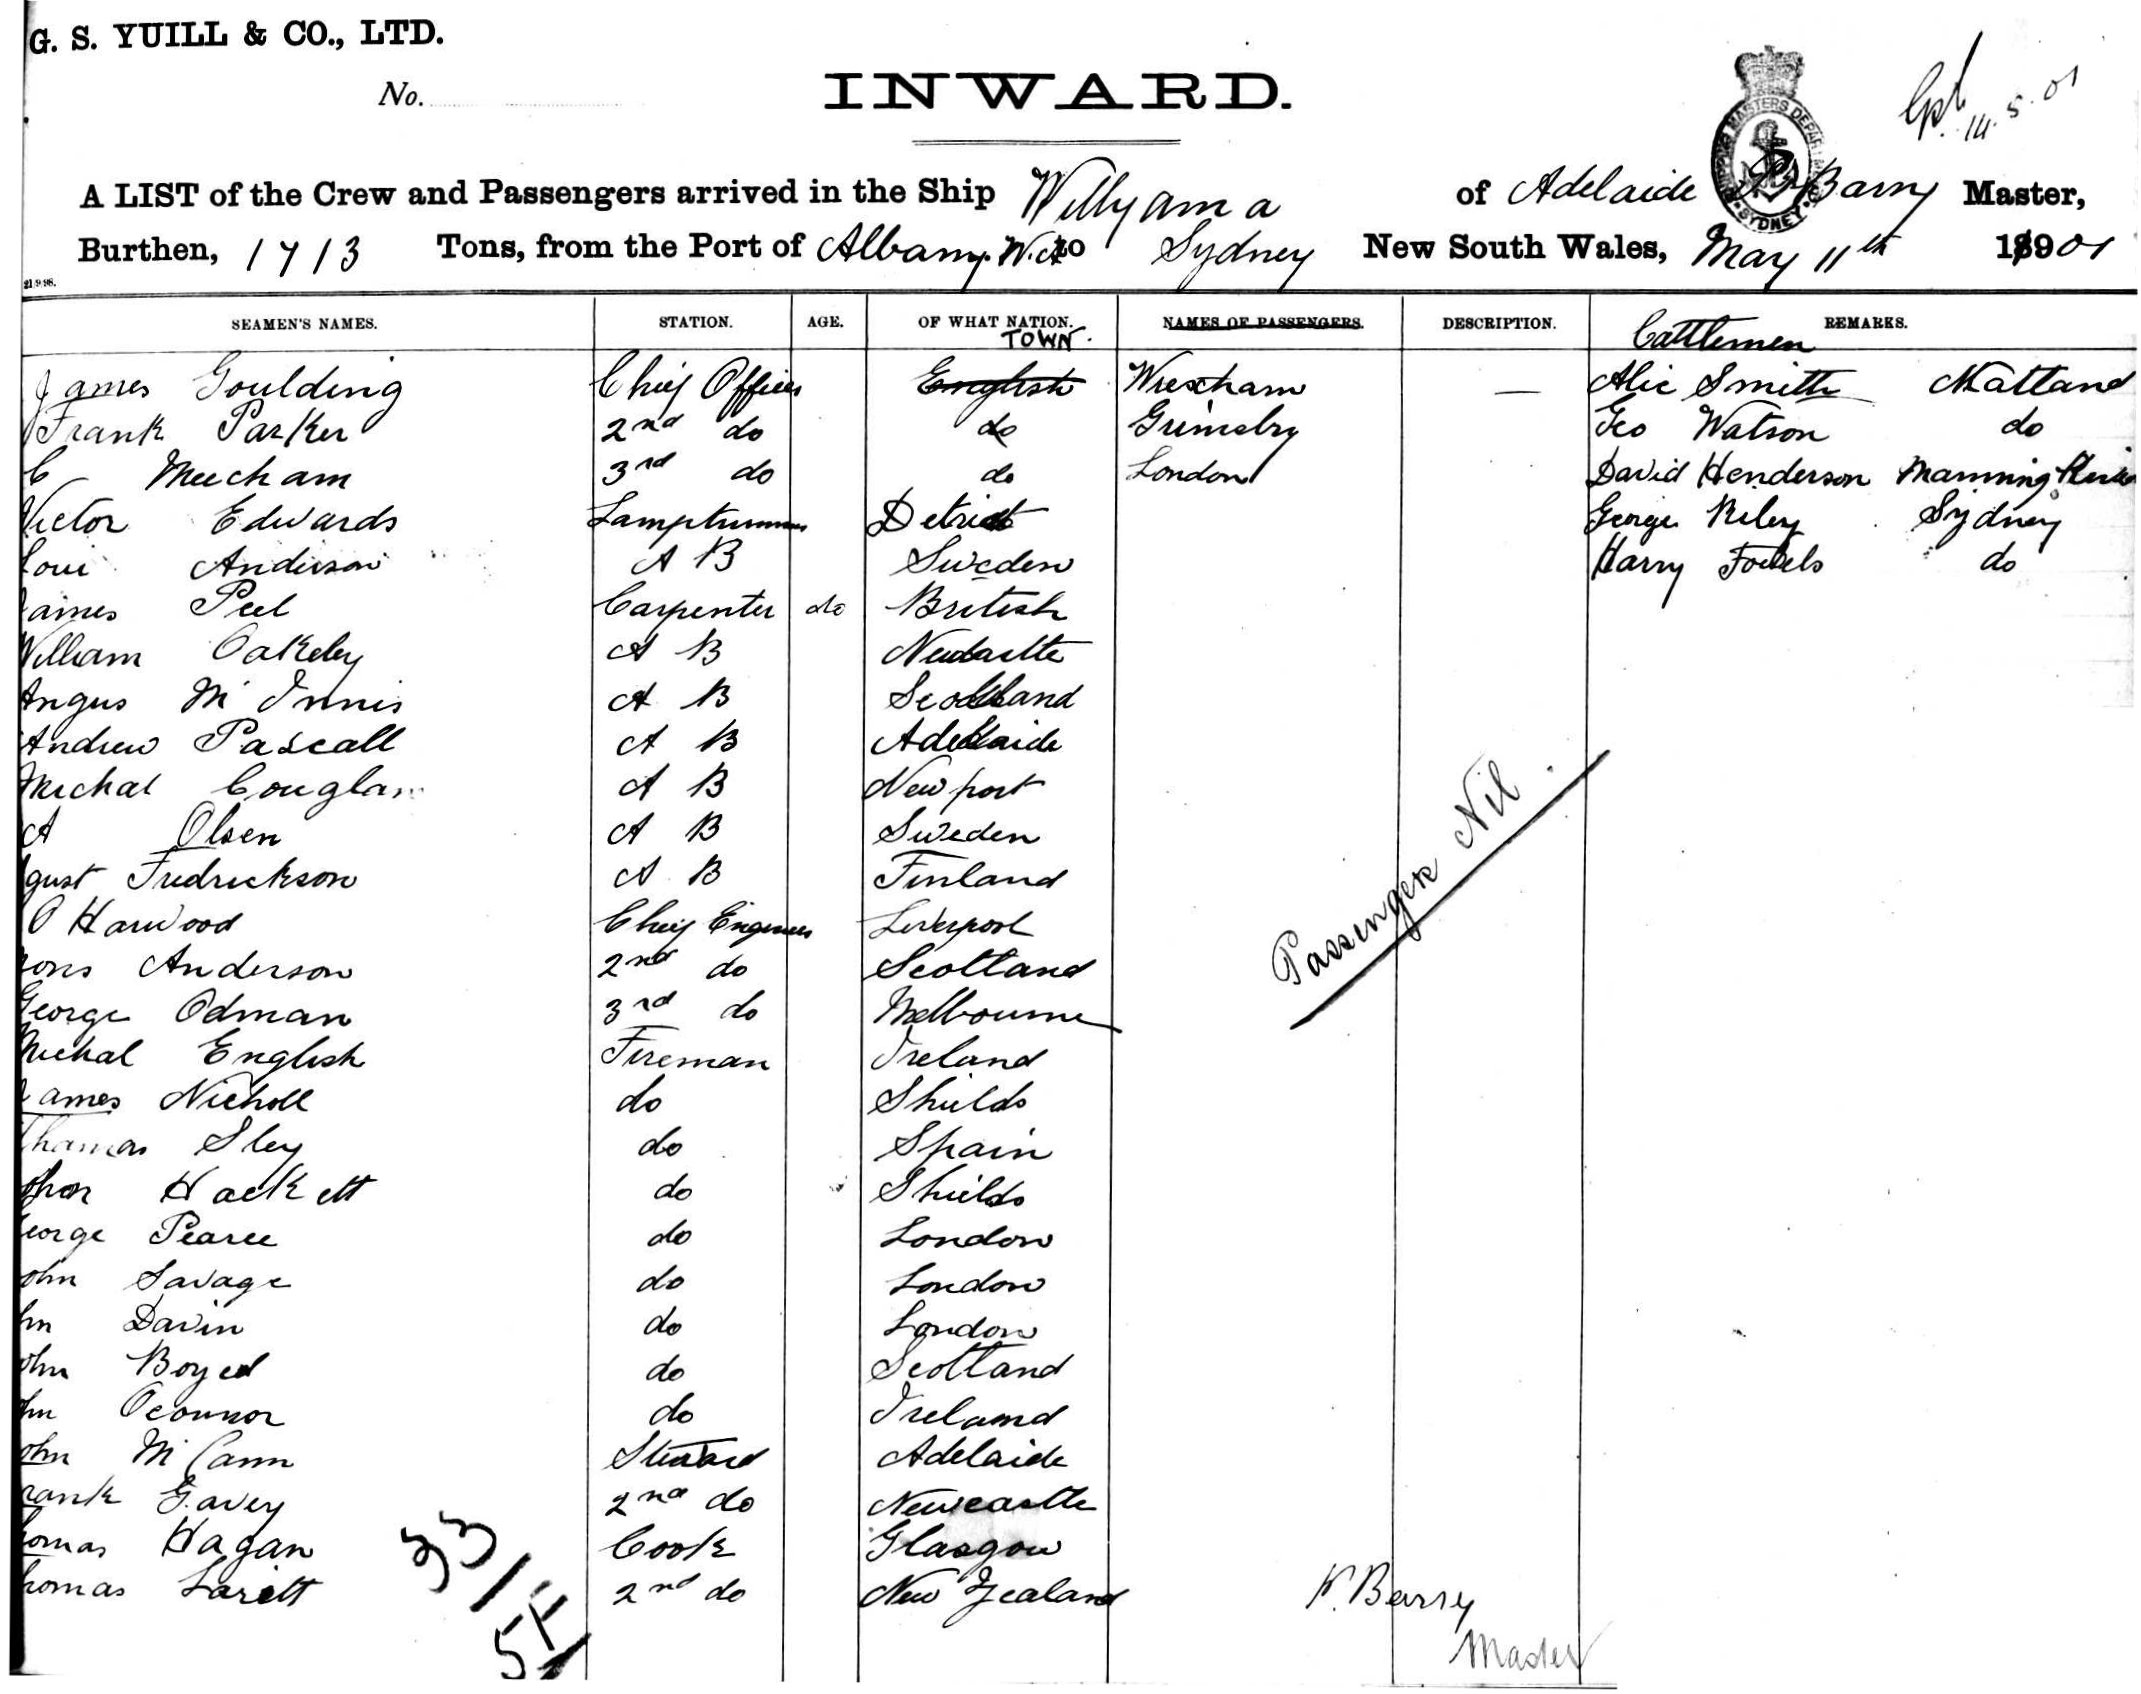 G. S. YUILL & CO., LTD.
No.
INWARD.
14.5.01
SHIPPING MASTERS DEPARTMENT SYDNEY
A LIST of the Crew and Passengers arrived in the Ship Willyama of Adelaide Barry Master,
Burthen, 1713 Tons, from the Port of Albany. W.A to Sydney New South Wales, May 11th 18901
21/9/98.
SEAMEN'S NAMES. STATION. AGE. OF WHAT NATION. NAMES OF PASSENGERS. DESCRIPTION. REMARKS.
TOWN. Cattlemen
James Goulding Chief Officer English Wrexham — Alic Smith Matland
Frank Parker 2nd do do Grimsby Geo Watson do
C Meecham 3rd do do London David Henderson Manning
Victor Edwards Lamptrimmer Detriot George Riley Sydney
Loui Anderson A B Sweden Harry do
James Peel Carpenter do British
William Oakeley A B Newcastle
Angus Mc Innis A B Scotland
Andrew Pascall A B Adelaide
Michal Couglan A B Newport
A Olsen A B Sweden
gust Fredrickson A B Finland
O Harwood Chief Engineer Liverpool
ons Anderson 2nd do Scotland
George Odman 3rd do Melbourne
Michal English Fireman Ireland
James Nicholl do Shields
Thomas Sley do Spain
John Hackett do Shields
eorge Pearce do London
ohn Savage do London
hn Davin do London
ohn Boyed do Scotland
hn Oconnor do Ireland
ohn Mc Cann Steward Adelaide
rank Gavey 2nd do Newcastle
homas Hagan Cook Glasgow
homas Larett 2nd do New Zealand
Passengers Nil.
33/
Barry
Master